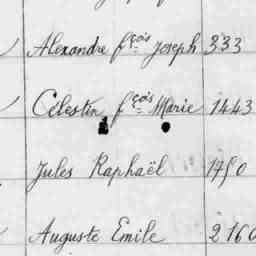 Alexandre f.çois Joseph 333
Célestin f.çois Marie 1443
Jules Raphaël 1750
Auguste Emile 2160